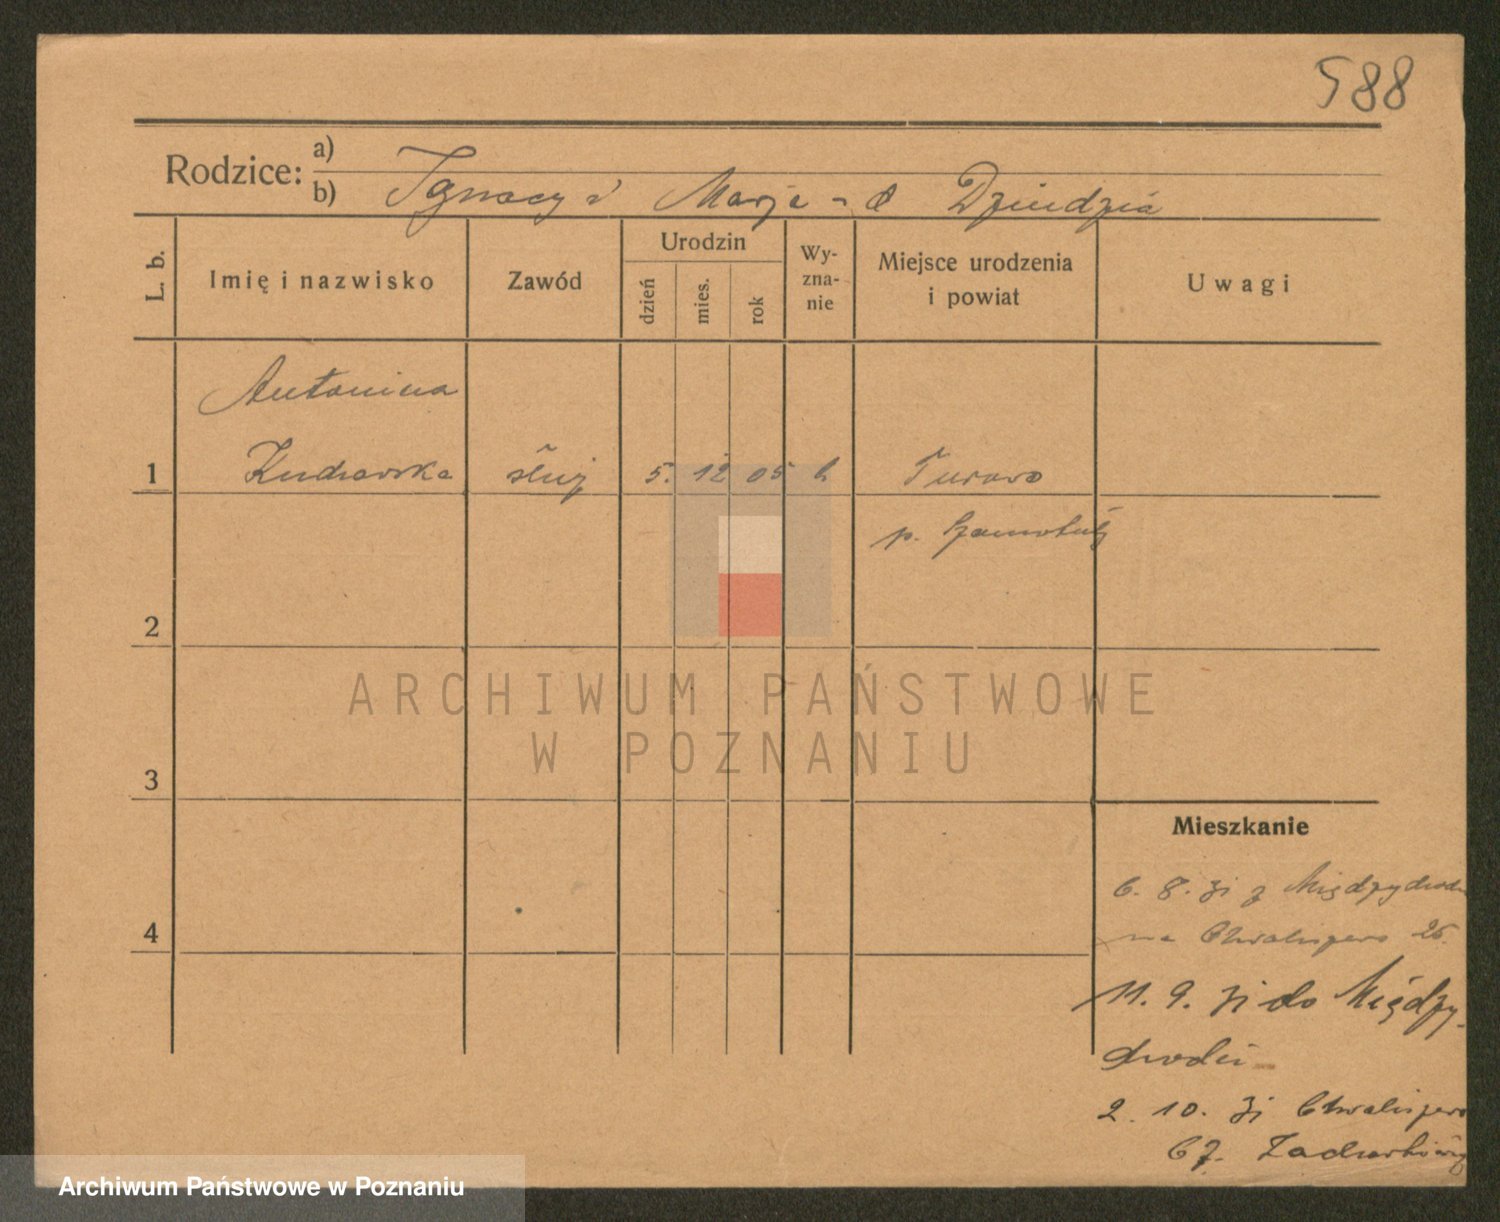 588
Rodzice: a)
b) Ignacy i Marja - d Dziudzia
L. b.
Imię i nazwisko
Zawód
Urodzin
dzień
mies.
rok
Wy-
zna-
nie
Miejsce urodzenia
i powiat
Uwagi
Antonina
1 Kudrawska służ 5. 12 05 Turowo
p. Szamotuły
2
3
4
Mieszkanie
6. 8. 31 z Międzychodu
na Chwaliszewo 26.
11. 9. 31 do Między-
chodu
2. 10. 31 Chwaliszewo
67.
ARCHIWUM PAŃSTWOWE
W POZNANIU
Archiwum Państwowe w Poznaniu